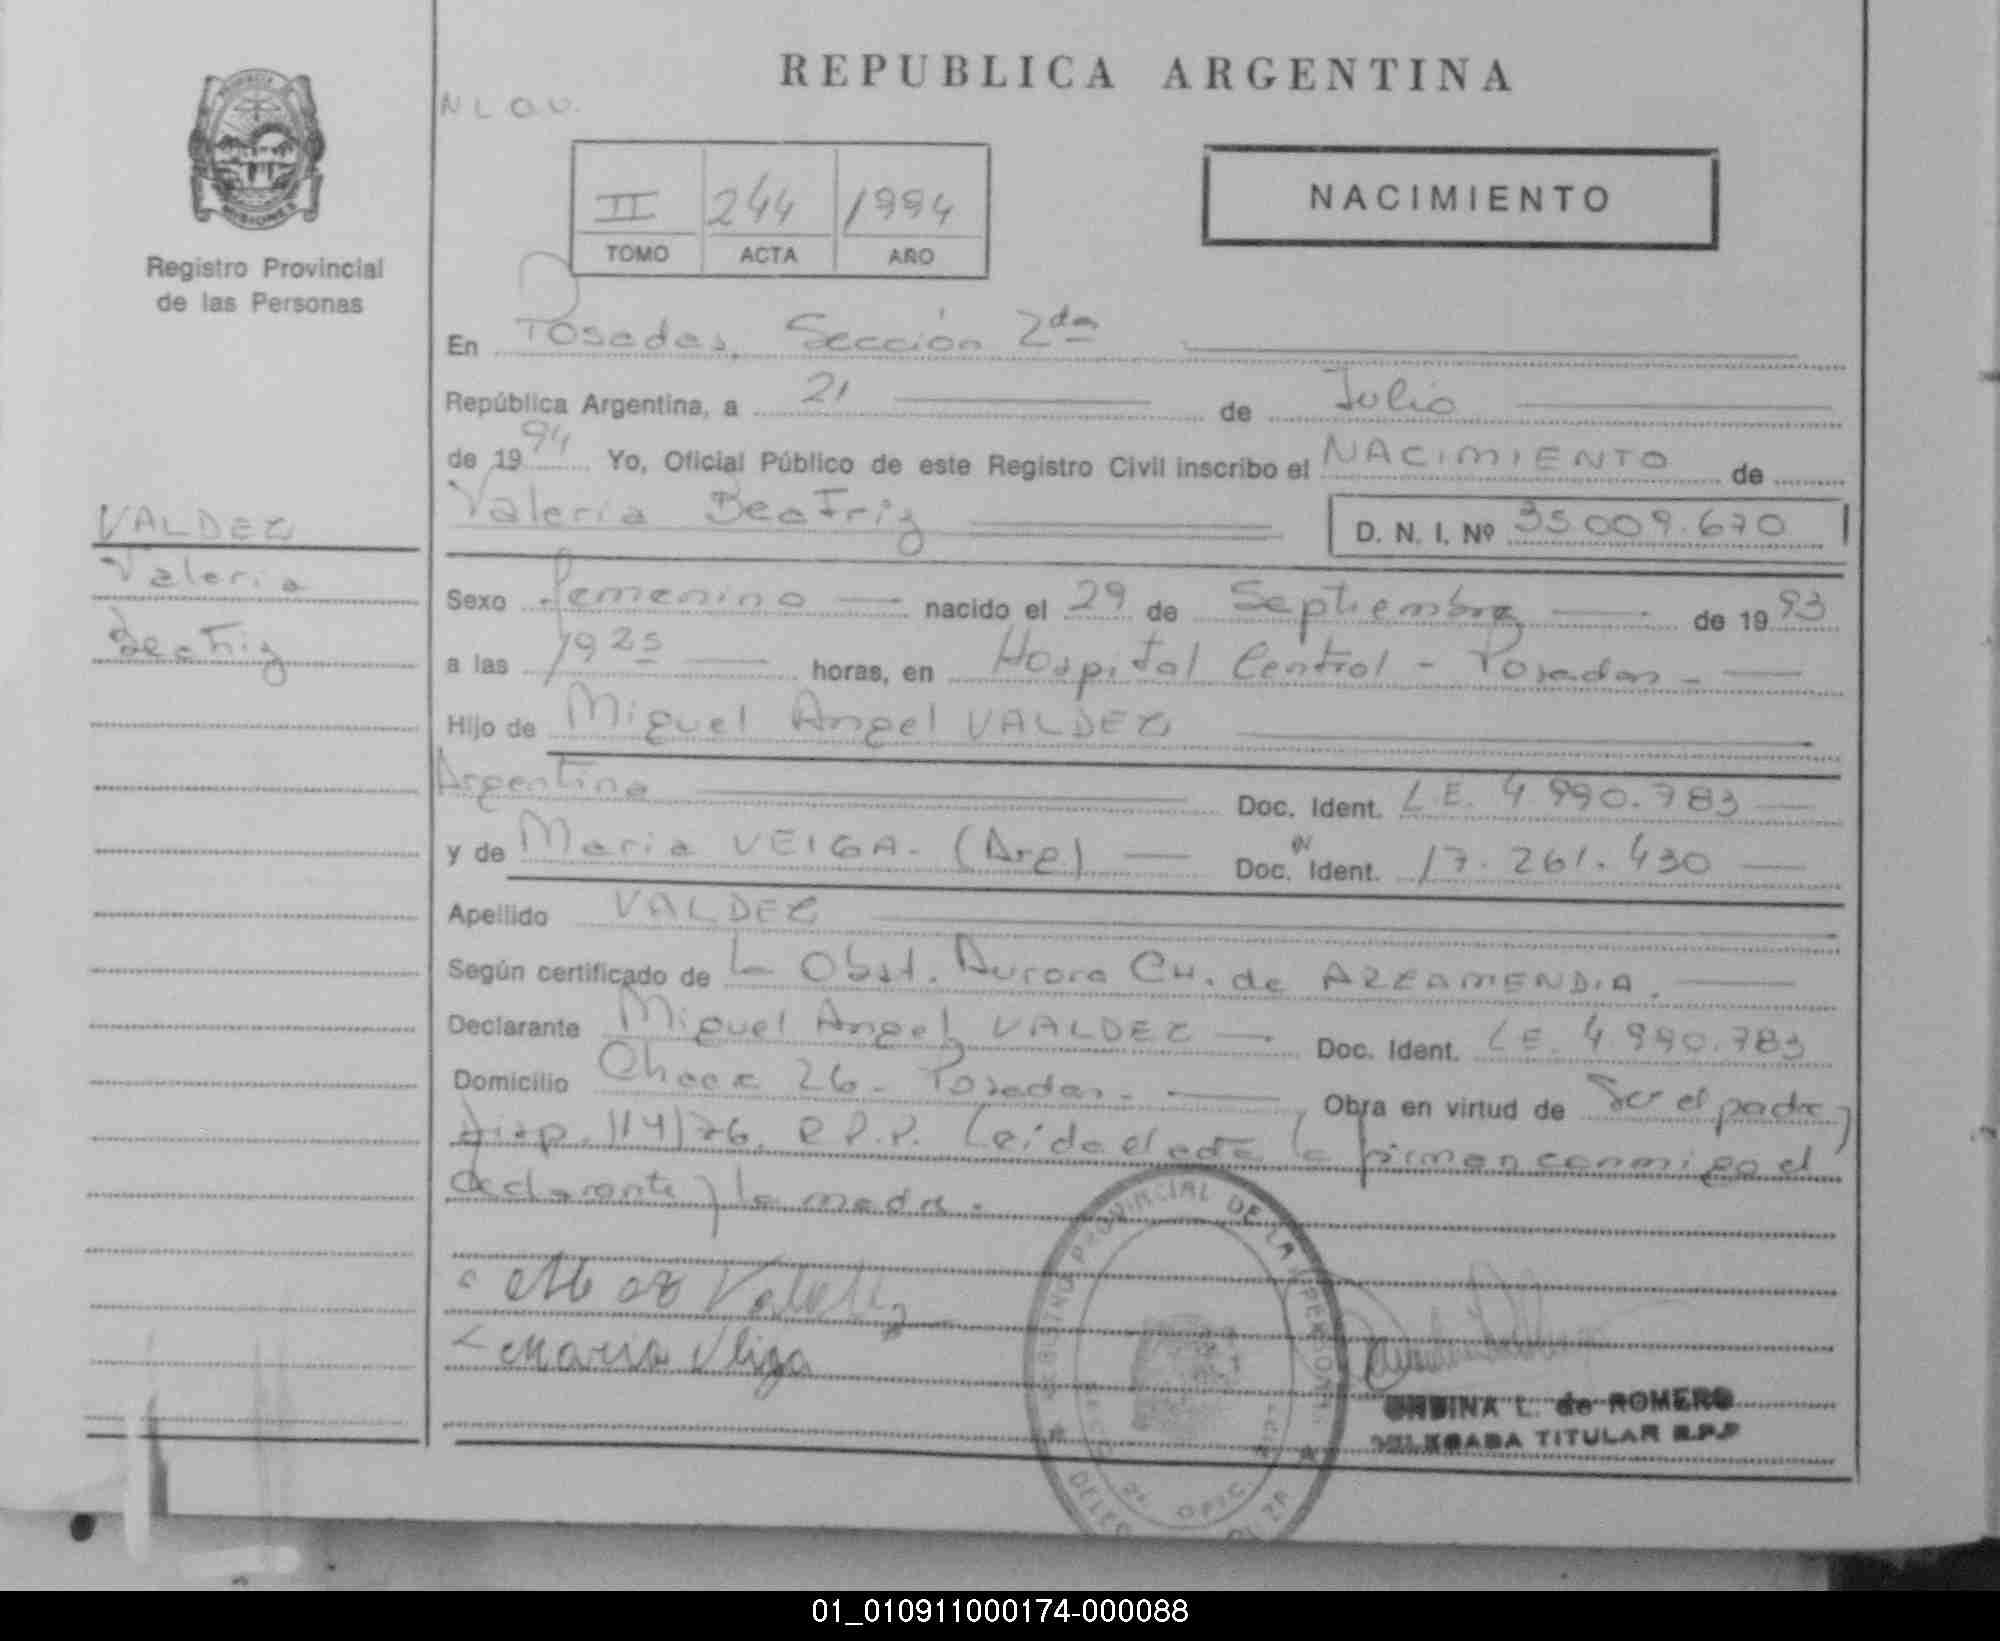 REPUBLICA ARGENTINA
N L Q U.
MISIONES
Registro Provincial
de las Personas
II 244 1994
TOMO ACTA AÑO
NACIMIENTO
En Posadas, Sección 2da
República Argentina, a 21 de Julio
de 1994 Yo, Oficial Público de este Registro Civil inscribo el NACIMIENTO de
Valeria Beatriz D. N. I. Nº 35.009.670
VALDEZ
Valeria
Beatriz
Sexo femenino nacido el 29 de Septiembre de 1993
a las 1925 horas, en Hospital Central - Posadas -
Hijo de Miguel Angel VALDEZ
Argentina Doc. Ident. L.E. 4.990.783
y de Maria VEIGA - (Arg) Doc. Ident. 17.261.430
Apellido VALDEZ
Según certificado de L Obst. Aurora CH. de AREAMENDIA.
Declarante Miguel Angel VALDEZ Doc. Ident. L.E. 4.990.783
Domicilio Chacra 26 - Posadas - Obra en virtud de Ser el padre y
disp. 114/76. R.P.P. Leida el acta la firman conmigo el
declarante y la madre.
Valdez
Maria Veiga
REGISTRO PROVINCIAL DE LAS PERSONAS
2a OFIC.
L. de ROMERO
DELEGADA TITULAR R.P.P
01_010911000174-000088